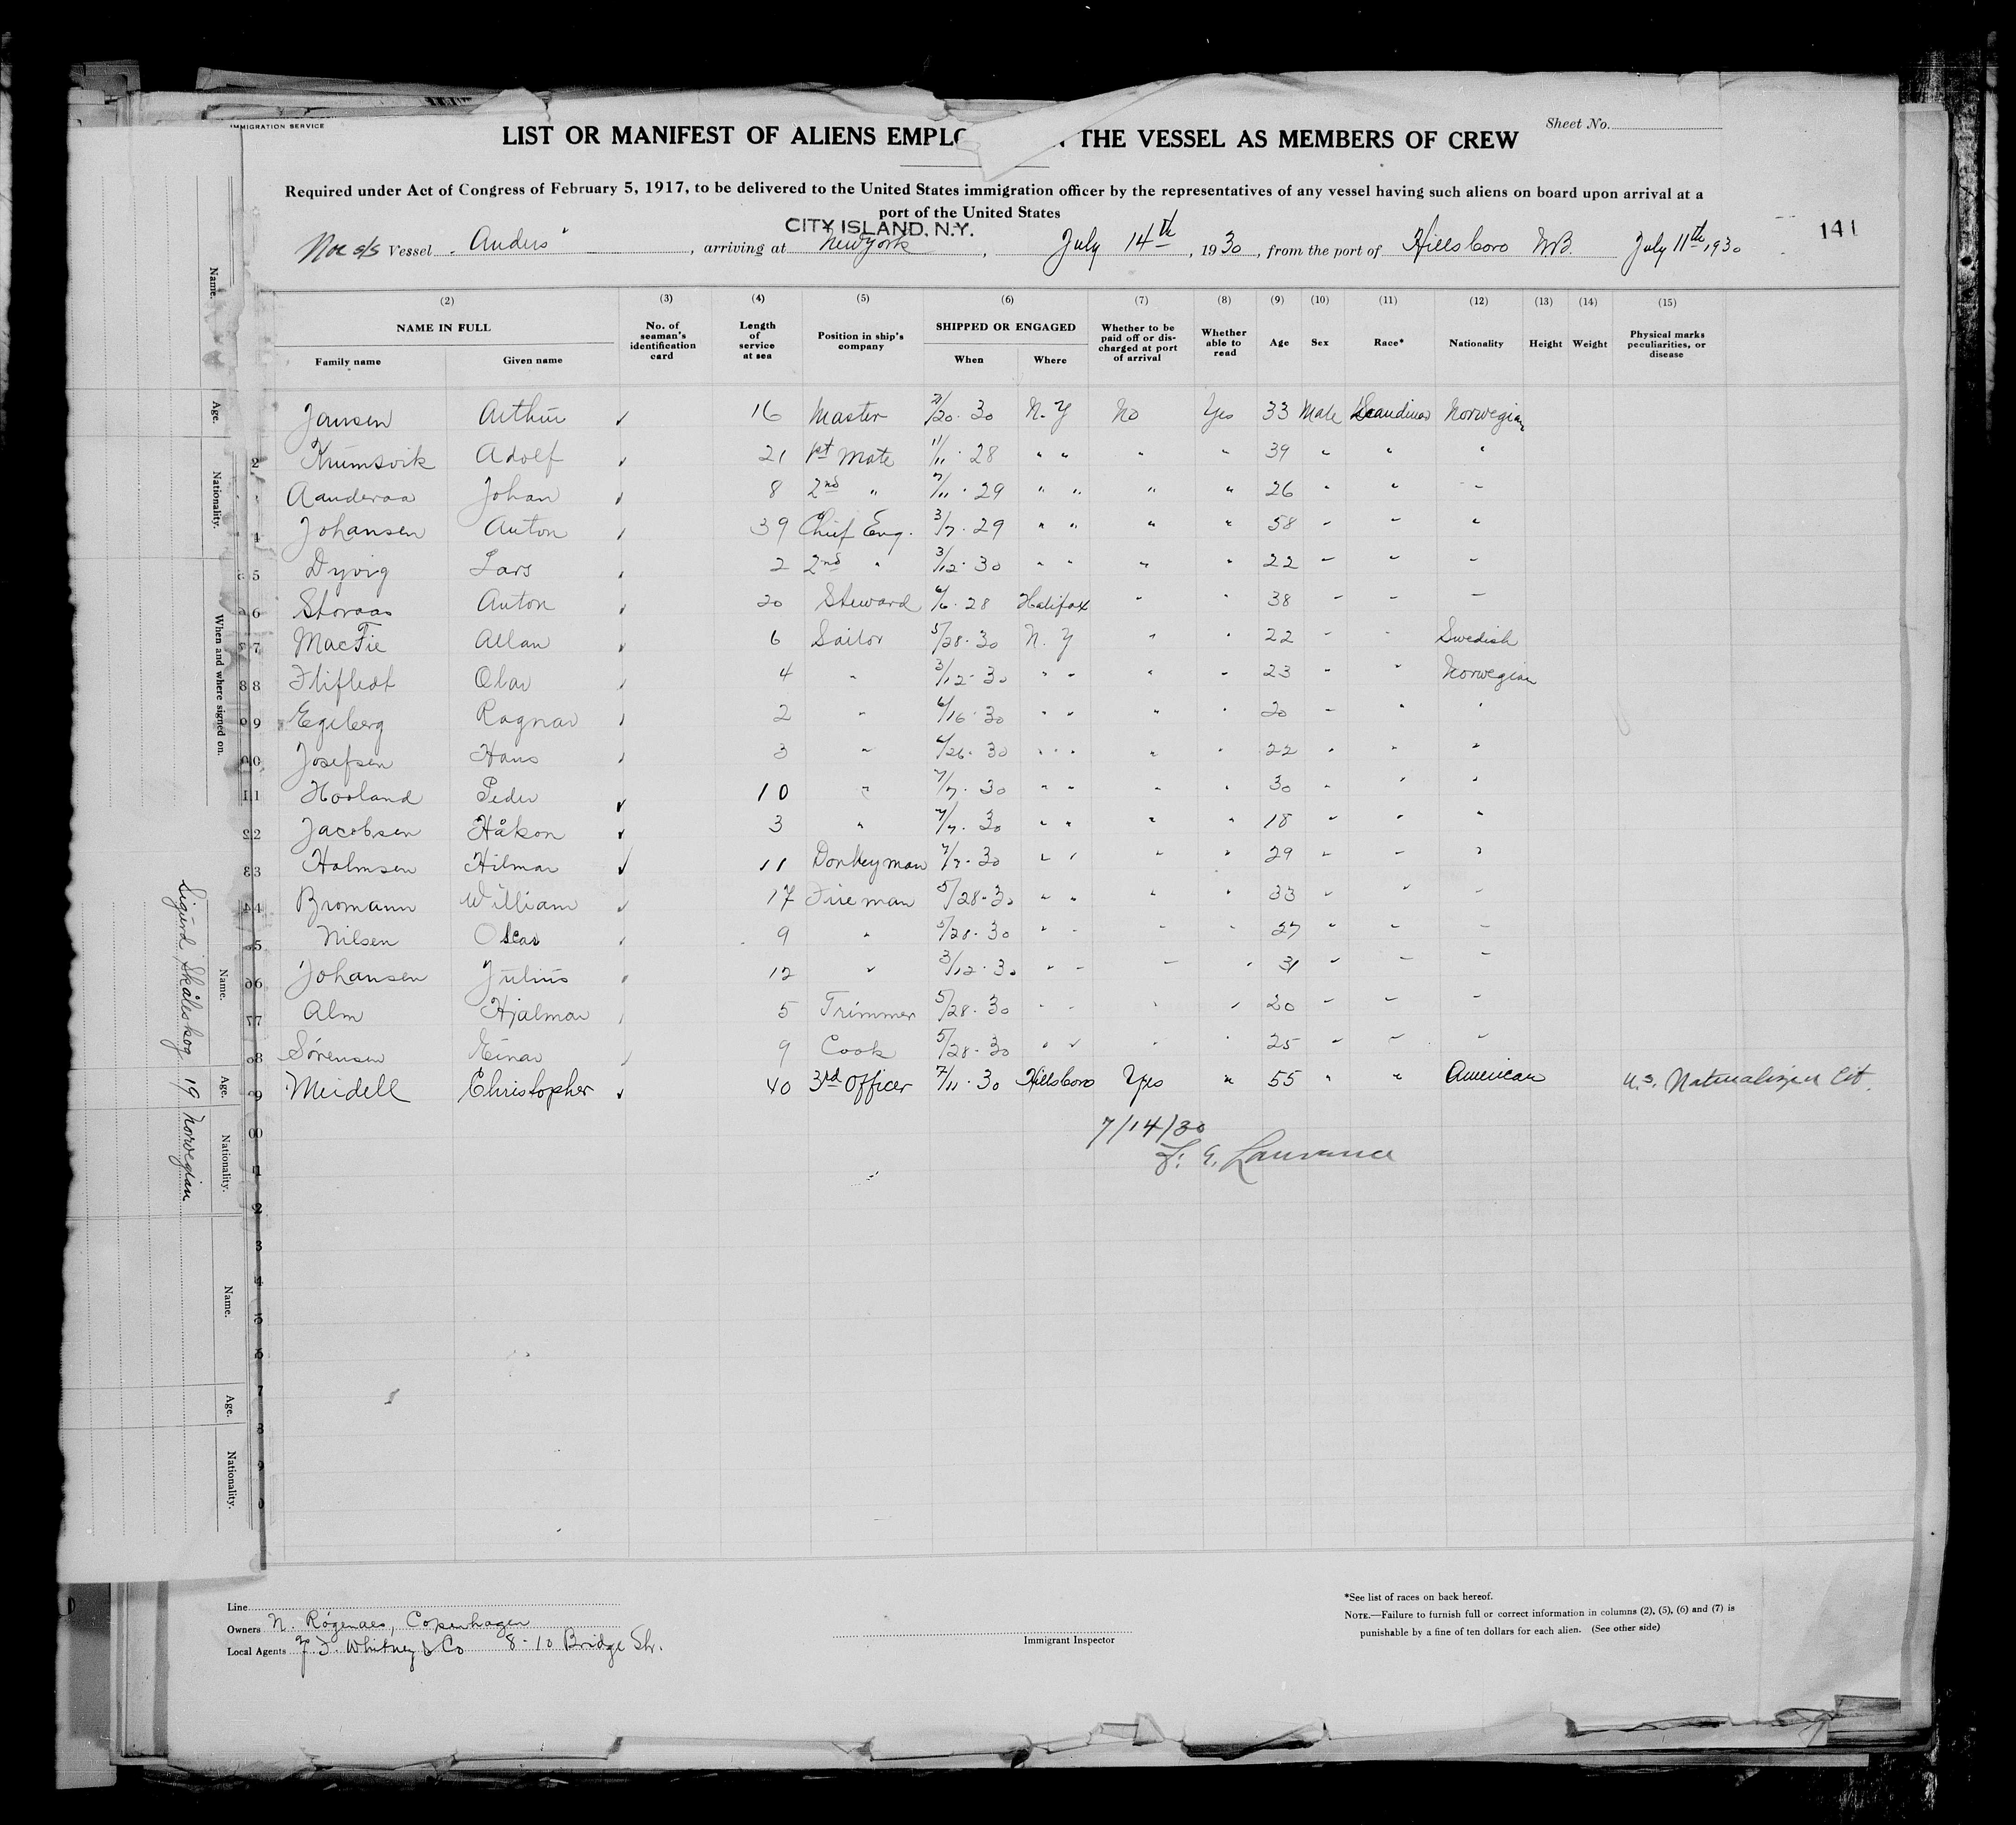 IMMIGRATION SERVICE
Sheet No.
LIST OR MANIFEST OF ALIENS EMPLO THE VESSEL AS MEMBERS OF CREW
Required under Act of Congress of February 5, 1917, to be delivered to the United States immigration officer by the representatives of any vessel having such aliens on board upon arrival at a
port of the United States
CITY ISLAND, N.Y.
Nor s/s Vessel "Anders", arriving at New York, July 14th, 1930, from the port of Hillsboro N.B. July 11th, 1930
141
(2) (3) (4) (5) (6) (7) (8) (9) (10) (11) (12) (13) (14) (15)
NAME IN FULL No. of seaman's identification card Length of service at sea Position in ship's company SHIPPED OR ENGAGED Whether to be paid off or discharged at port of arrival Whether able to read Age Sex Race* Nationality Height Weight Physical marks peculiarities, or disease
Family name Given name When Where
Jansen Arthur ✓ 16 Master /20-30 N.Y No Yes 33 Male Scandinav Norwegian
2 Krumsvik Adolf ✓ 21 1st Mate 11/11-28 " " " " 39 " " "
Aanderaa Johan ✓ 8 2nd " 7/11-29 " " " " 26 " " "
4 Johansen Anton ✓ 39 Chief Eng. 3/7-29 " " " " 58 " " "
5 Dyvig Lars ✓ 2 2nd " 3/12-30 " " " " 22 " " "
6 Storaas Anton ✓ 20 Steward 6/6-28 Halifax " " 38 " " "
7 MacFie Allan ✓ 6 Sailor 5/28-30 N.Y " " 22 " " Swedish
8 Flifledt Olav ✓ 4 " 3/12-30 " " " " 23 " " Norwegian
9 Egeberg Ragnar ✓ 2 " 6/16-30 " " " " 20 " " "
10 Josefsen Hans ✓ 3 " 6/26-30 " " " " 22 " " "
11 Hovland Peder ✓ 10 " 7/7-30 " " " " 30 " " "
12 Jacobsen Håkon ✓ 3 " 7/7-30 " " " " 18 " " "
13 Holmsen Hilmar ✓ 11 Donkeyman 7/7-30 " " " " 29 " " "
14 Bromann William ✓ 17 Fireman 5/28-30 " " " " 33 " " "
15 Nilsen Oscar ✓ 9 " 5/28-30 " " " " 27 " " "
16 Johansen Julius ✓ 12 " 3/12-30 " " " " 31 " " "
17 Alm Hjalmar ✓ 5 Trimmer 5/28-30 " " " " 20 " " "
18 Sørensen Einar ✓ 9 Cook 5/28-30 " " " " 25 " " "
19 Meidell Christopher ✓ 40 3rd Officer 7/11-30 Hillsboro Yes " 55 " " American U.S. Naturalized Cit.
7/14/30
Name.
Age.
Nationality.
When and where signed on.
Name.
Age.
Nationality.
Sigurd Skåleskog 19 Norwegian
Name.
Age.
Nationality.
Line
Owners N. Røgenaes, Copenhagen
Local Agents J. F. Whitney & Co 8-10 Bridge Str.
Immigrant Inspector
*See list of races on back hereof.
NOTE.—Failure to furnish full or correct information in columns (2), (5), (6) and (7) is
punishable by a fine of ten dollars for each alien. (See other side)